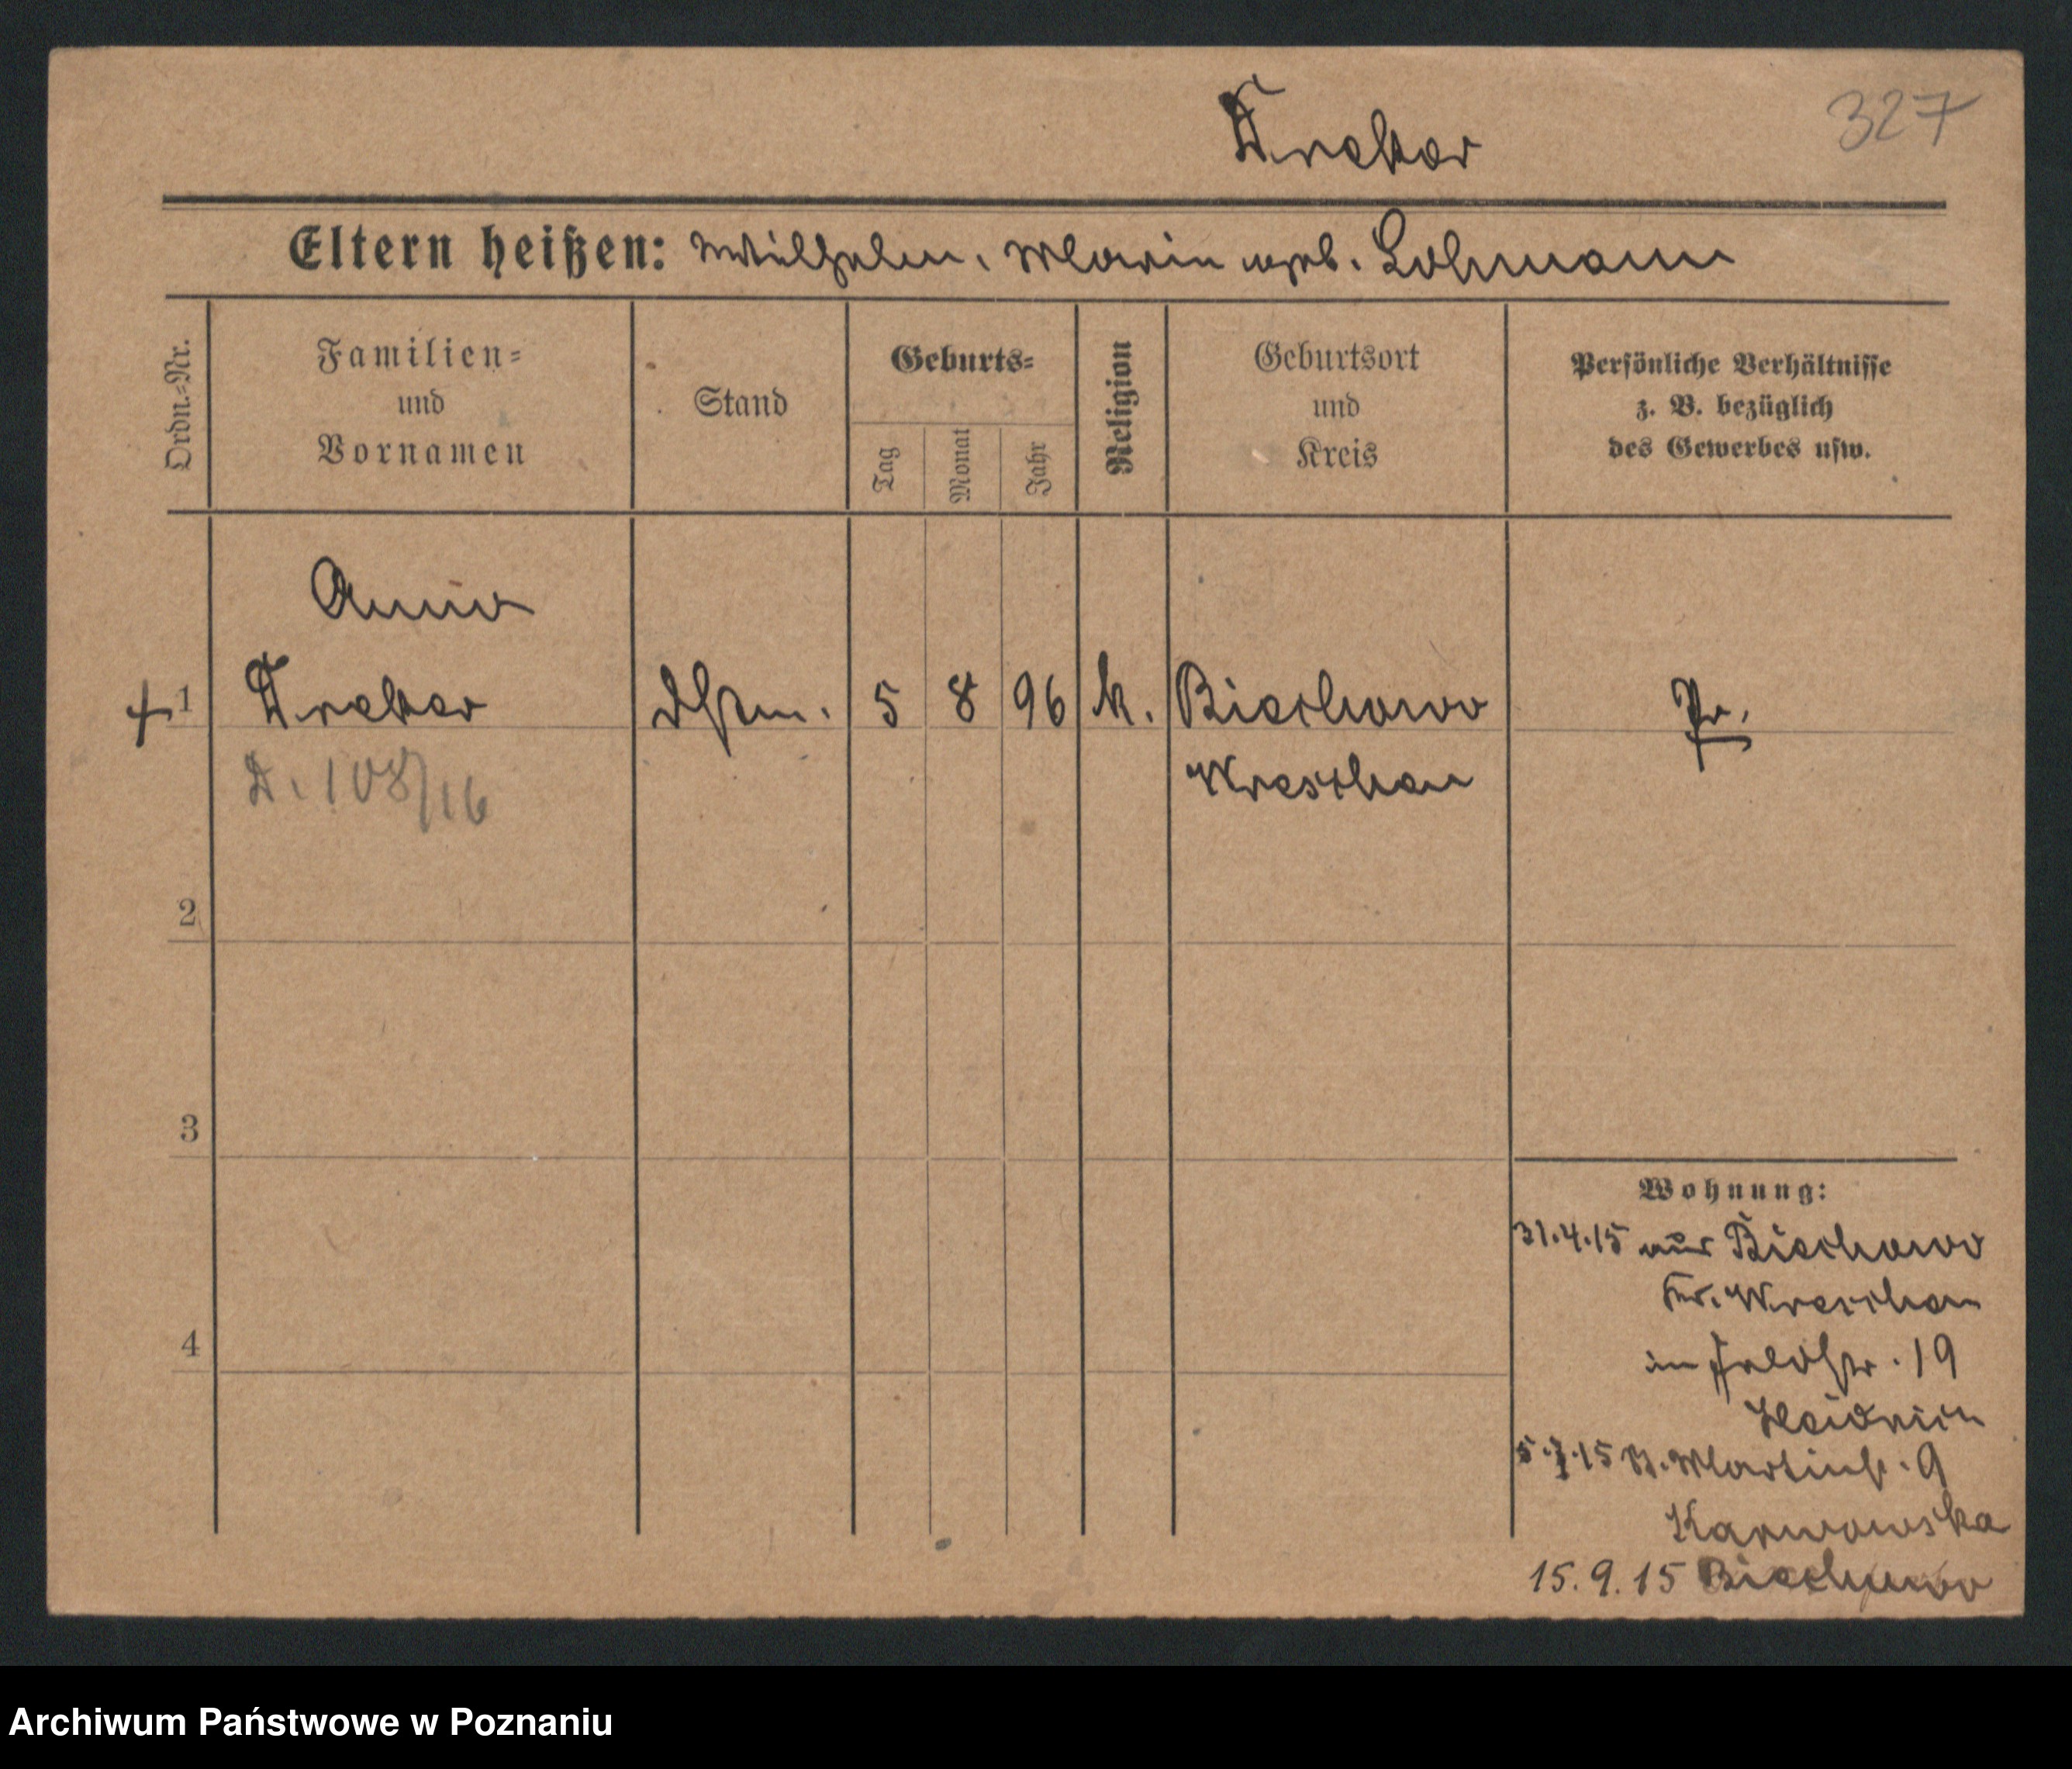 327
Eltern heißen: Wilhelm, Maria geb. Lohmann
Ordn.=Nr.
Familien=
und
Vornamen
Stand
Geburts=
Tag
Monat
Jahr
Religion
Geburtsort
und
Kreis
Persönliche Verhältnisse
z. B. bezüglich
des Gewerbes usw.
Anna
1 Dstm. 5 8 96 k. Biechowo Pr.
Wreschen
108/16
2
3
4
Wohnung:
31.4.15 aus Biechowo
Kr. Wreschen
im 19
5.7.15 St. Martinstr. 9
Karwowska
15.9.15 Biechowo
Archiwum Państwowe w Poznaniu